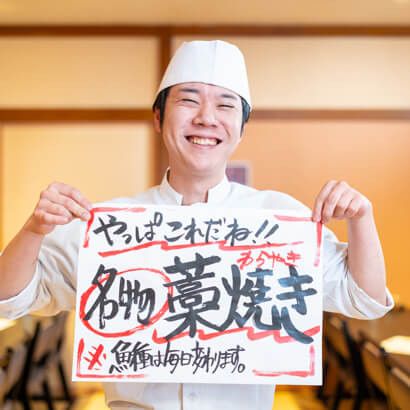 やっぱこれだね!!
わらやき
名物 藁焼き
※魚種は毎日変わります。